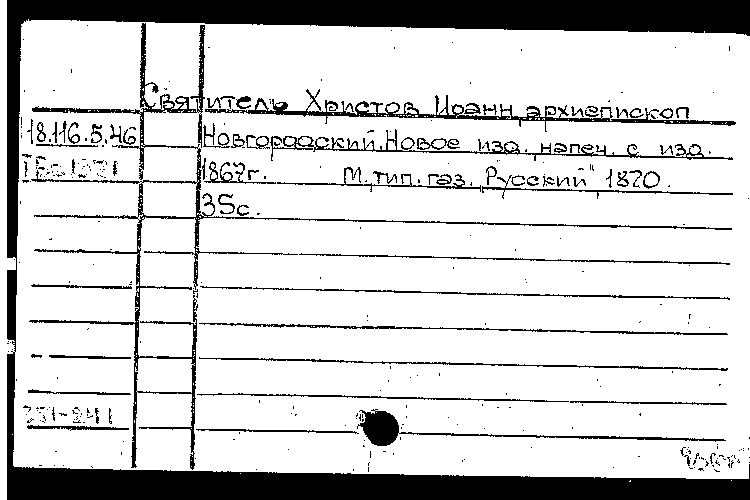 Святитель Христов Иоанн, архиепископ
18.116.5.46 Новгородский. Новое изд., напеч. с изд.
1867г. М., тип. газ. „Русский", 1870.
35с.